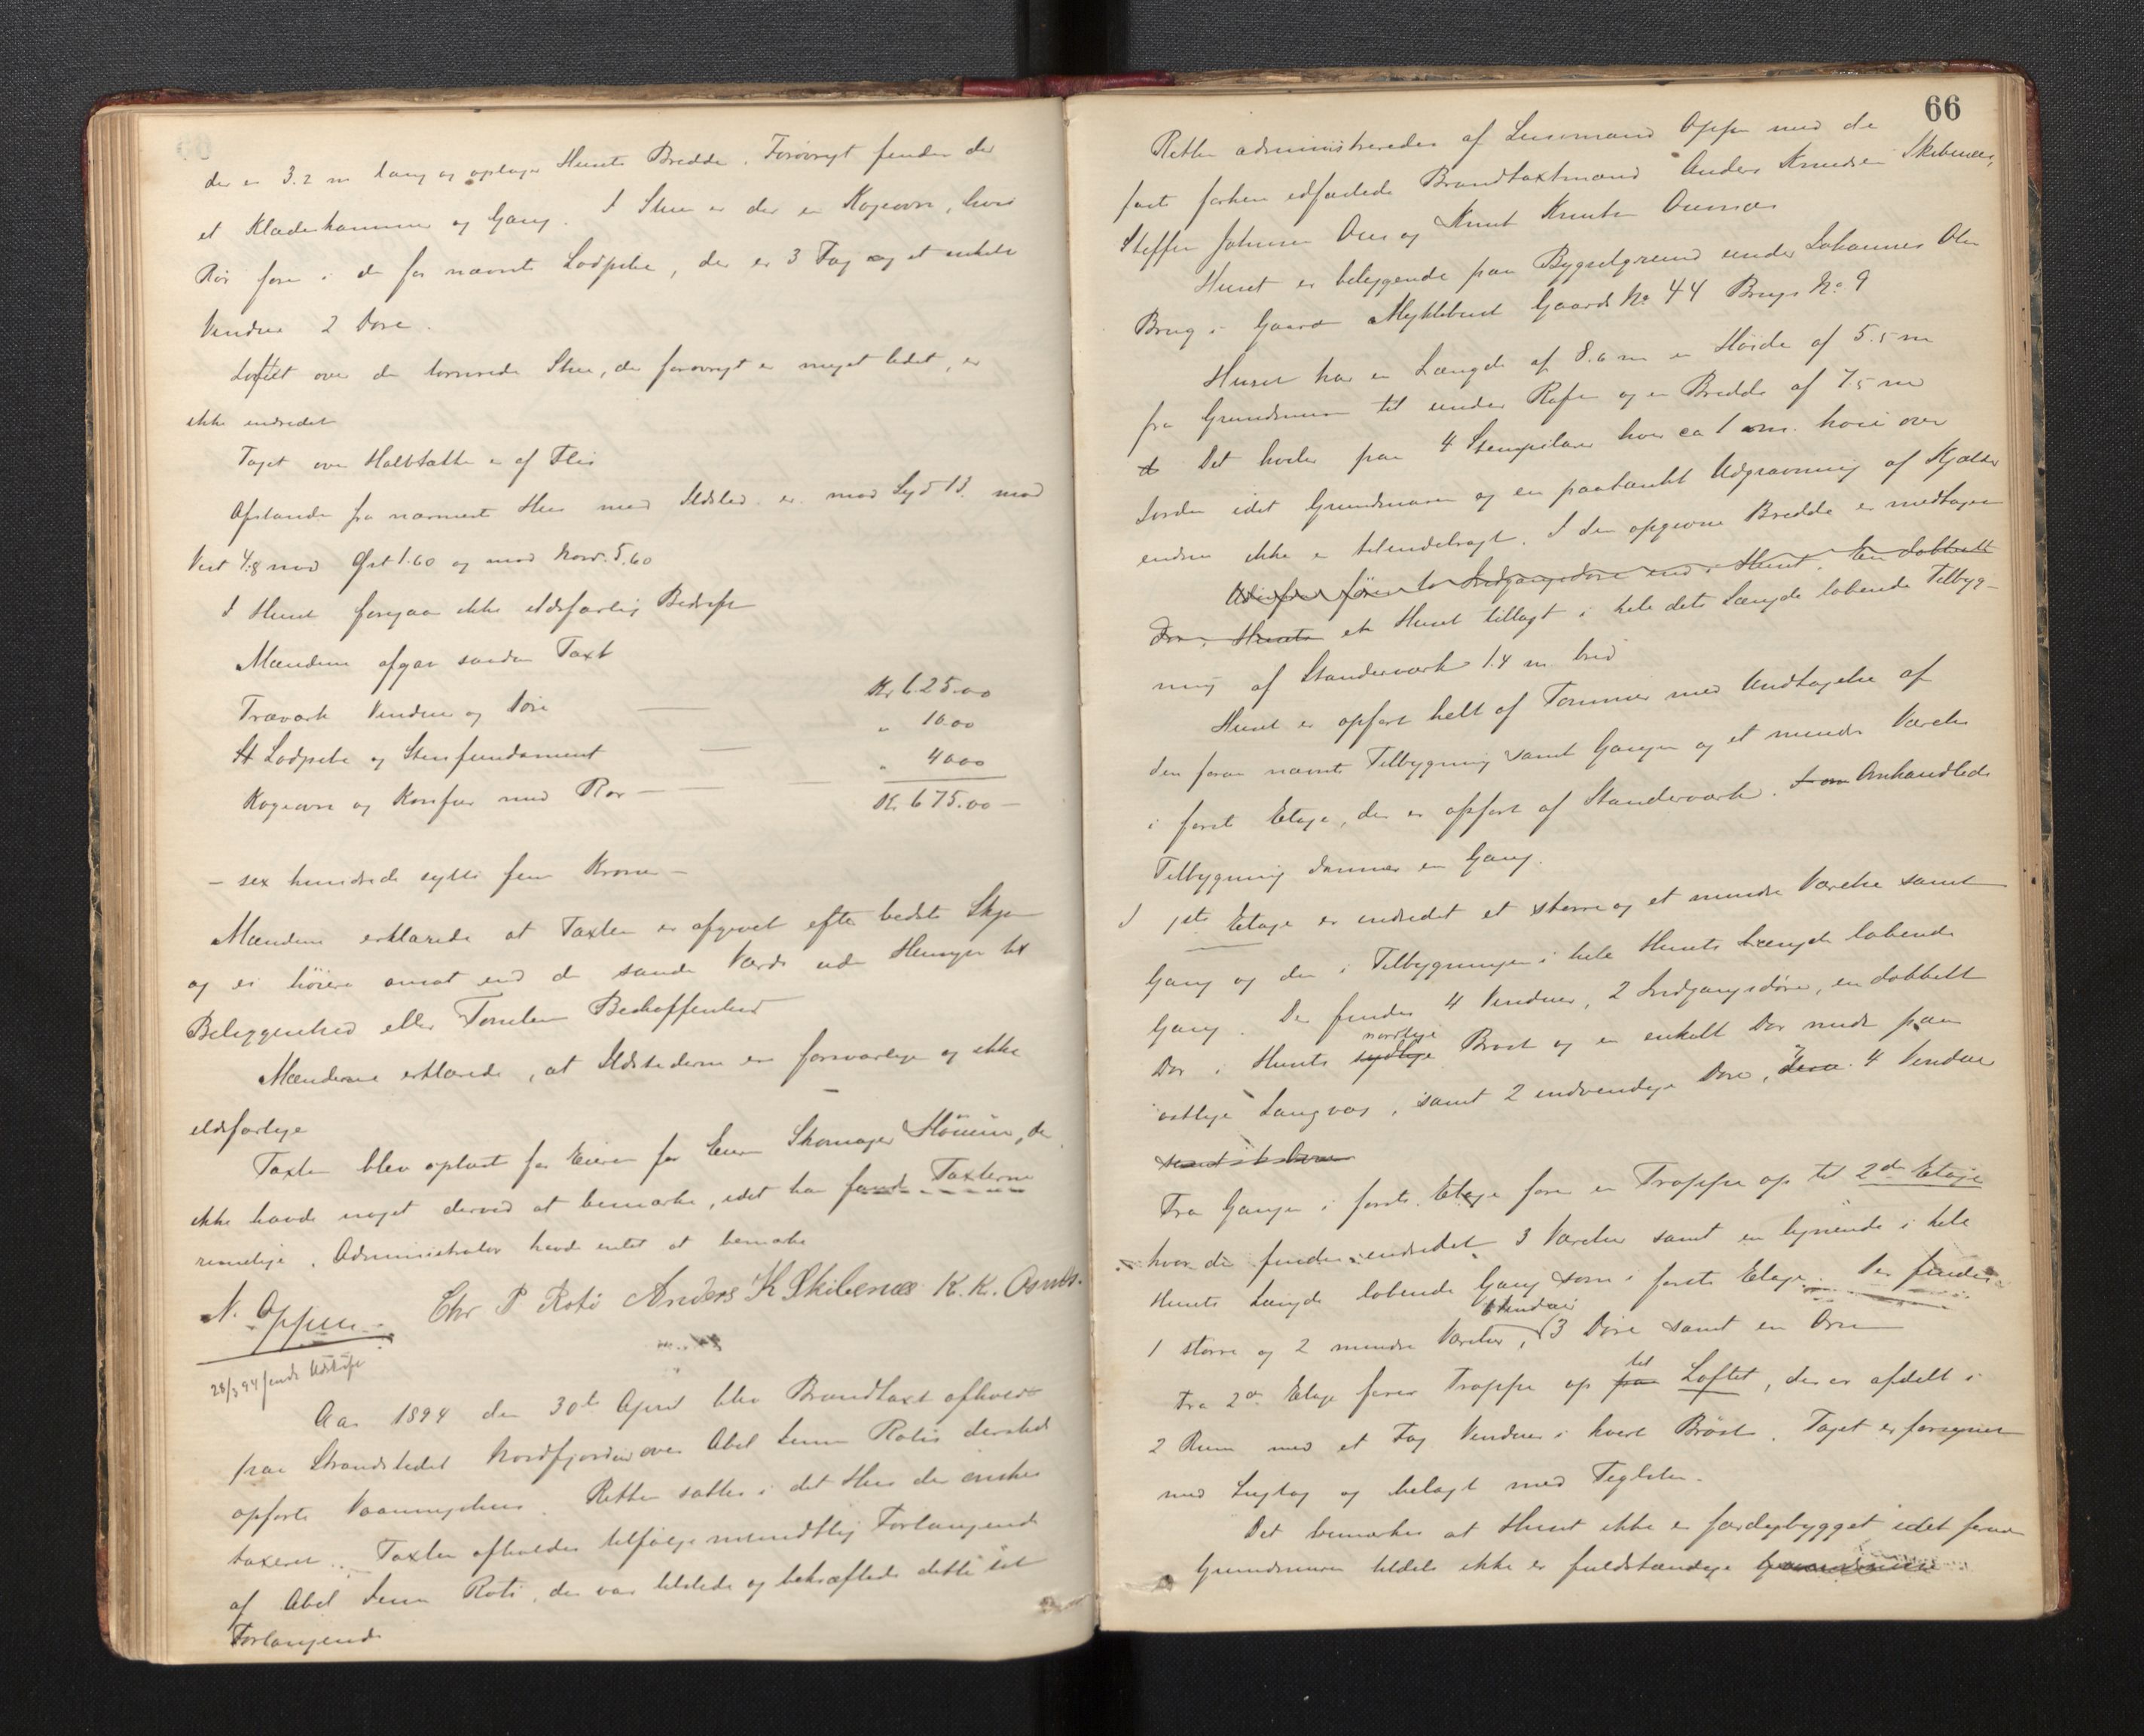 der er 3.2 m lang og optager Husets Bredde. Forøvrigt findes der
et Klædeskammer og Gang. I Stuen er der en Kogeovn, hvis
Rør fører i den før nævnte Lodpibe, der er 3 Fag og et enkelt
Vindue 2 Døre.
Loftet over den tømrede Stue, der forøvrigt er meget ledet, er
ikke indredet
Taget over Halvtætte er af Flis
Afstanden fra nærmeste Hus med Ildsted er mod Syd 13. mod
Vest 4.8 mod Øst 1.60 og mod Nord. 5.60
I Huset foregaar ikke ildsfarlig Bedrift
Mændene afgav saadan Taxt
Træværk Vinduer og Døre — Kr 625.00
Lodpibe og Stenfundament — " 10.00
Kogeovn og Komfur med Rør — " 40.00
Kr. 675.00 —
– sex hundrede sytti fem Kroner –
Mændene erklærede at Taxten er afgivet efter bedste Skjøn
og ei høiere ansat end den sande Værdi uden Hensyn til
Beliggenhed eller Tomtens Beskaffenhed
Mændene erklærede, at Ildstederne er forsvarlige og ikke
ildsfarlige
Taxten blev oplæst for Eieren for Eieren Skomager, der
ikke havde noget derved at bemærke, idet han fandt Taxterne
rimelige. Administrator havde intet at bemærke
N. Oppen Chr P Roti Anders K Skibenæs K. K. Osnes.
28/5 94 sendt Udskrift
Aar 1894 den 30te April blev Brandtaxt afholdt
paa Strandstedet Nordfjordeid over Abel Lenn Rotis dersteds
opførte Vaaningshus. Retten sattes i det Hus der ønskes
taxeret. Taxten afholdes tilfølge mundtlig Forlangende
af Abel Lenn Roti, der var tilstede og bekræftede dette sit
Forlangende
66
Retten administreredes af Lensmand Oppen med de
fast forhen edfæstede Brandtaxtmænd Anders Knudsen Skibenæs,
Steffen Johnsen Ous og Knut Knutsen Ousnæs
Huset er beliggende paa Bygselgrund under Johannes Ols
Brug i Gaard Myklebust Gaards No 44 Brugs No 9
Huset har en Længde af 8.6 m en Høide af 5.5 m
fra Grundmuren til under Raften og en Bredde af 7.5 m
Det hviler paa 4 Stenpilarer hver ca 1 m. høie over
Jorden idet Grundmuren og en paatænkt Udgravning af Kjælder
endnu ikke er tilendebragt. I den opgivne Bredde er medtagen
Udenfra fører to Indgangsdøre ind i Huset. En dobbelt
Dør i Husets et Huset tillagt i hele dets Længde løbende Tilbyg-
ning af Standerværk 1.4 m bred
Huset er opført helt af Tømmer med Undtagelse af
den foran nævnte Tilbygning samt Gangen og et mindre Værelse
i første Etage, der er opført af Standerværk. Omhandlede
Tilbygning danner en Gang.
I 1ste Etage er indredet et større og et mindre Værelse samt
Gang og den i Tilbygningen i hele Husets Længde løbende
Gang. Der findes 4 Vinduer, 2 Indgangsdøre, en dobbelt
Dør i Husets sydlige nordlige Brøst og en enkelt Dør midt paa
østlige Langvæg, samt 2 indvendige Døre, 4 Vinduer
Fra Gangen i første Etage fører en Trappe op til 2den Etage
hvor der findes indredet 3 Værelser samt en lignende i hele
Husets Længde løbende Gang som i første Etage. Der findes
1 større og 2 mindre Værelser, Vinduer 3 Døre samt en Ovn
Fra 2den Etage fører Trappe op paa til Loftet, der er afdelt i
2 Rum med et Fag Vinduer i hvert Brøst. Taget er forsynet
med Sugtag og belagt med Teglsten.
Det bemærkes at Huset ikke er færdigbygget idet foruden
Grundmuren tildels ikke er fuldstændige